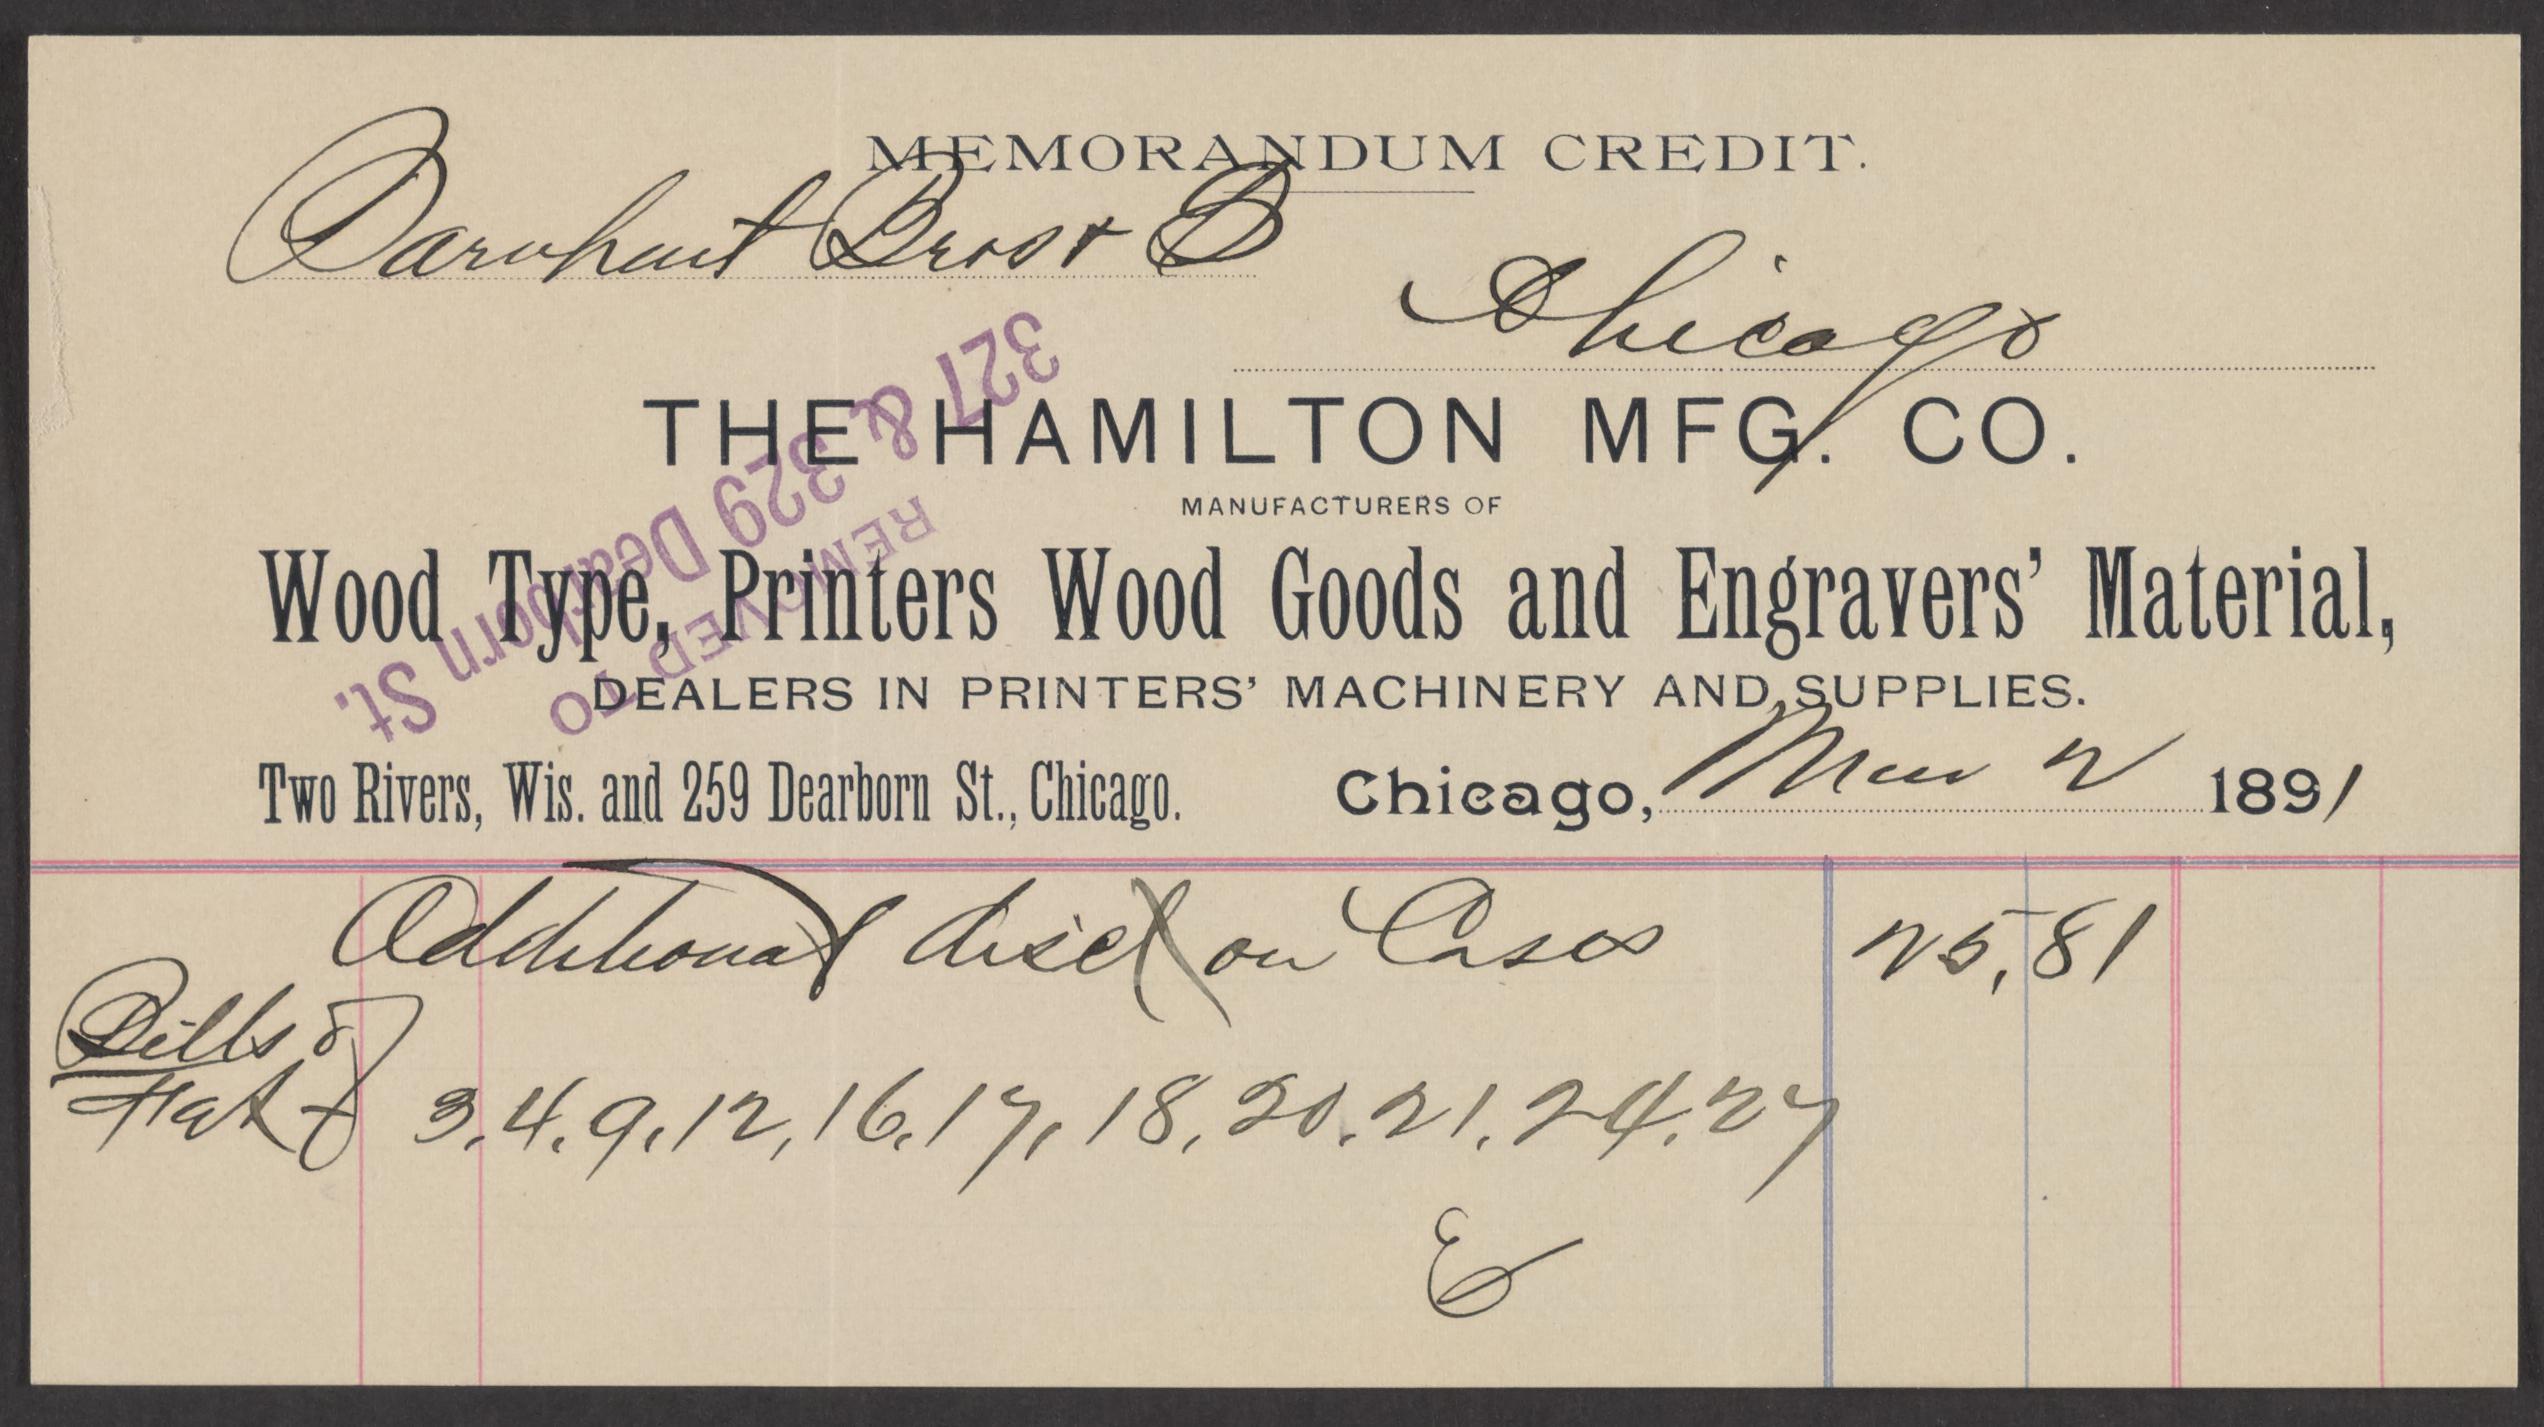 MEMORANDUM CREDIT.
Barnhart Bros & S
Chicago
THE HAMILTON MFG. CO.
MANUFACTURERS OF
Wood Type, Printers Wood Goods and Engravers' Material,
DEALERS IN PRINTERS' MACHINERY AND SUPPLIES.
Two Rivers, Wis. and 259 Dearborn St., Chicago. Chicago, Mar 2 1891
REMOVED TO
327 & 329 Dearborn St.
Additional disct on Cases 25.81
Bills of
3, 4, 9, 12, 16, 17, 18, 20, 21, 24, 27